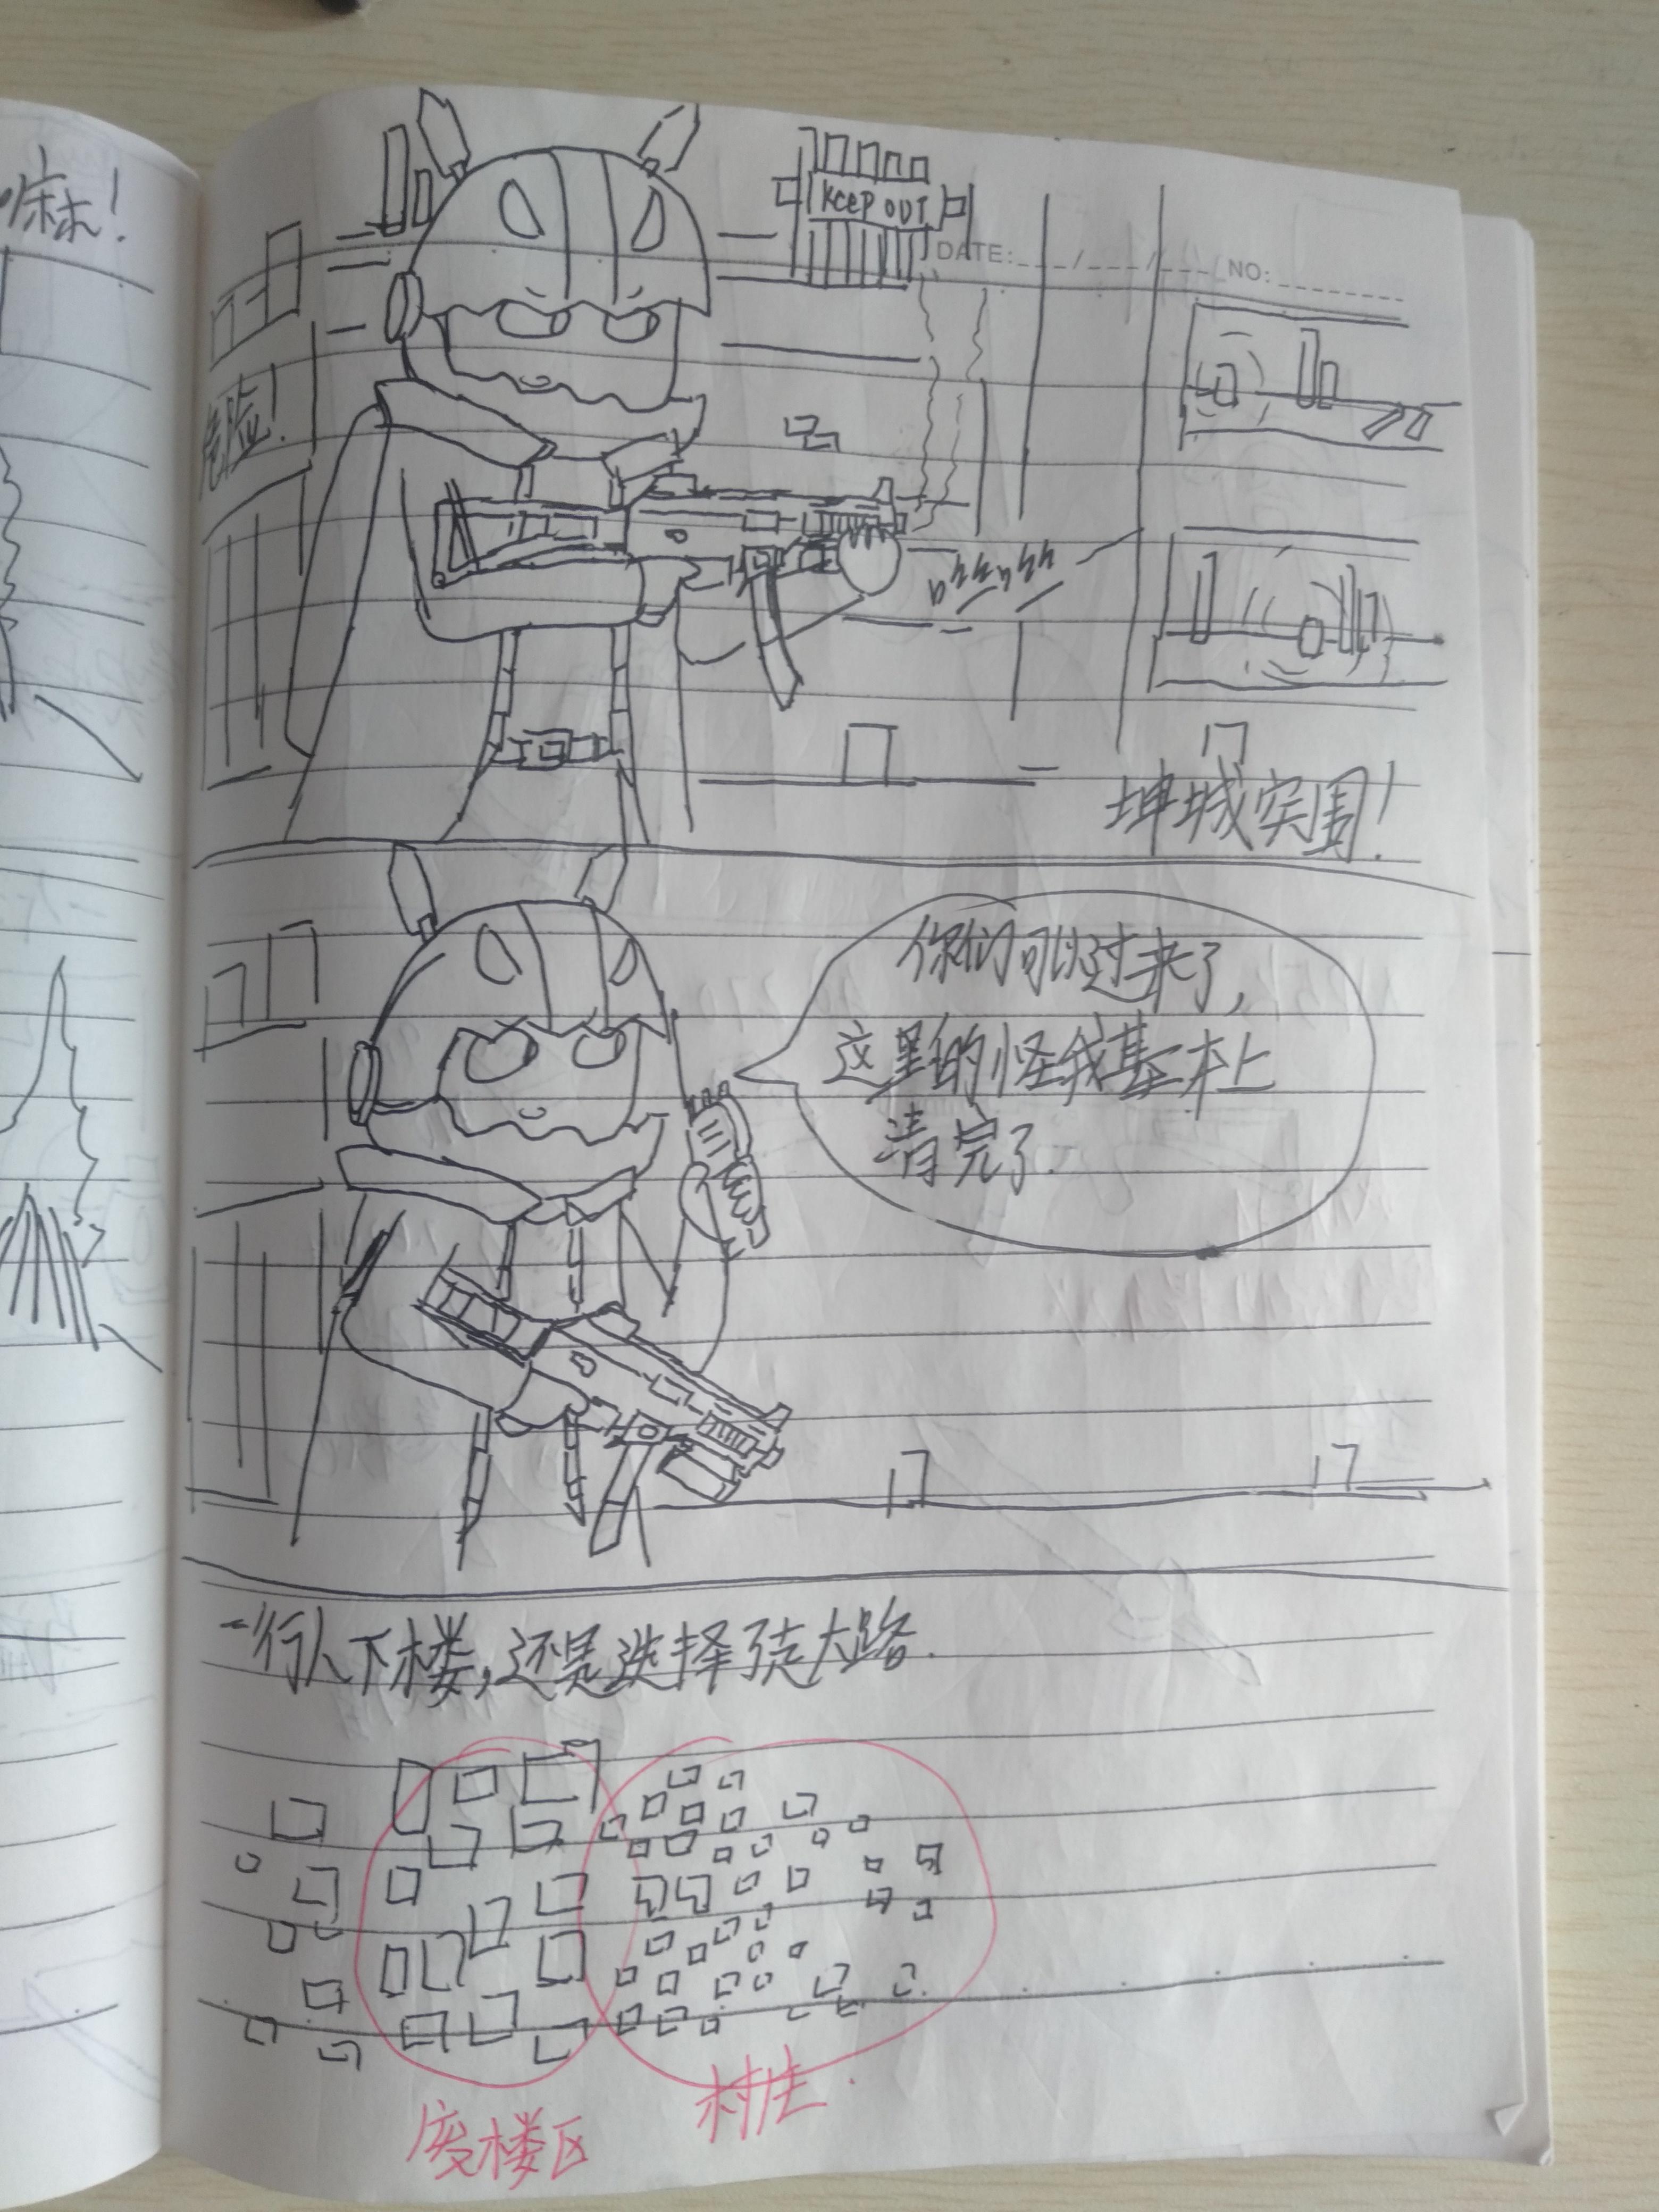 麻!
KEEP OUT
DATE: NO:
危险!
坤城突围!
你们可以过来了,
这里的怪我基本上
清完了.
一行人下楼,还是选择了走大路.
村庄.
废楼区